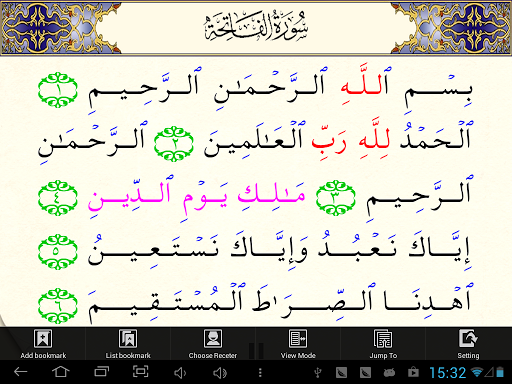 سُورَةُ الْفَاتِحَةِ
بِسْمِ ٱللَّهِ ٱلرَّحْمَٰنِ ٱلرَّحِيمِ ١
ٱلْحَمْدُ لِلَّهِ رَبِّ ٱلْعَالَمِينَ ٢ ٱلرَّحْمَٰنِ
ٱلرَّحِيمِ ٣ مَٰلِكِ يَوْمِ ٱلدِّينِ ٤
إِيَّاكَ نَعْبُدُ وَإِيَّاكَ نَسْتَعِينُ ٥
ٱهْدِنَا ٱلصِّرَٰطَ ٱلْمُسْتَقِيمَ ٦
Add bookmark List bookmark Choose Receter View Mode Jump To Setting
15:32